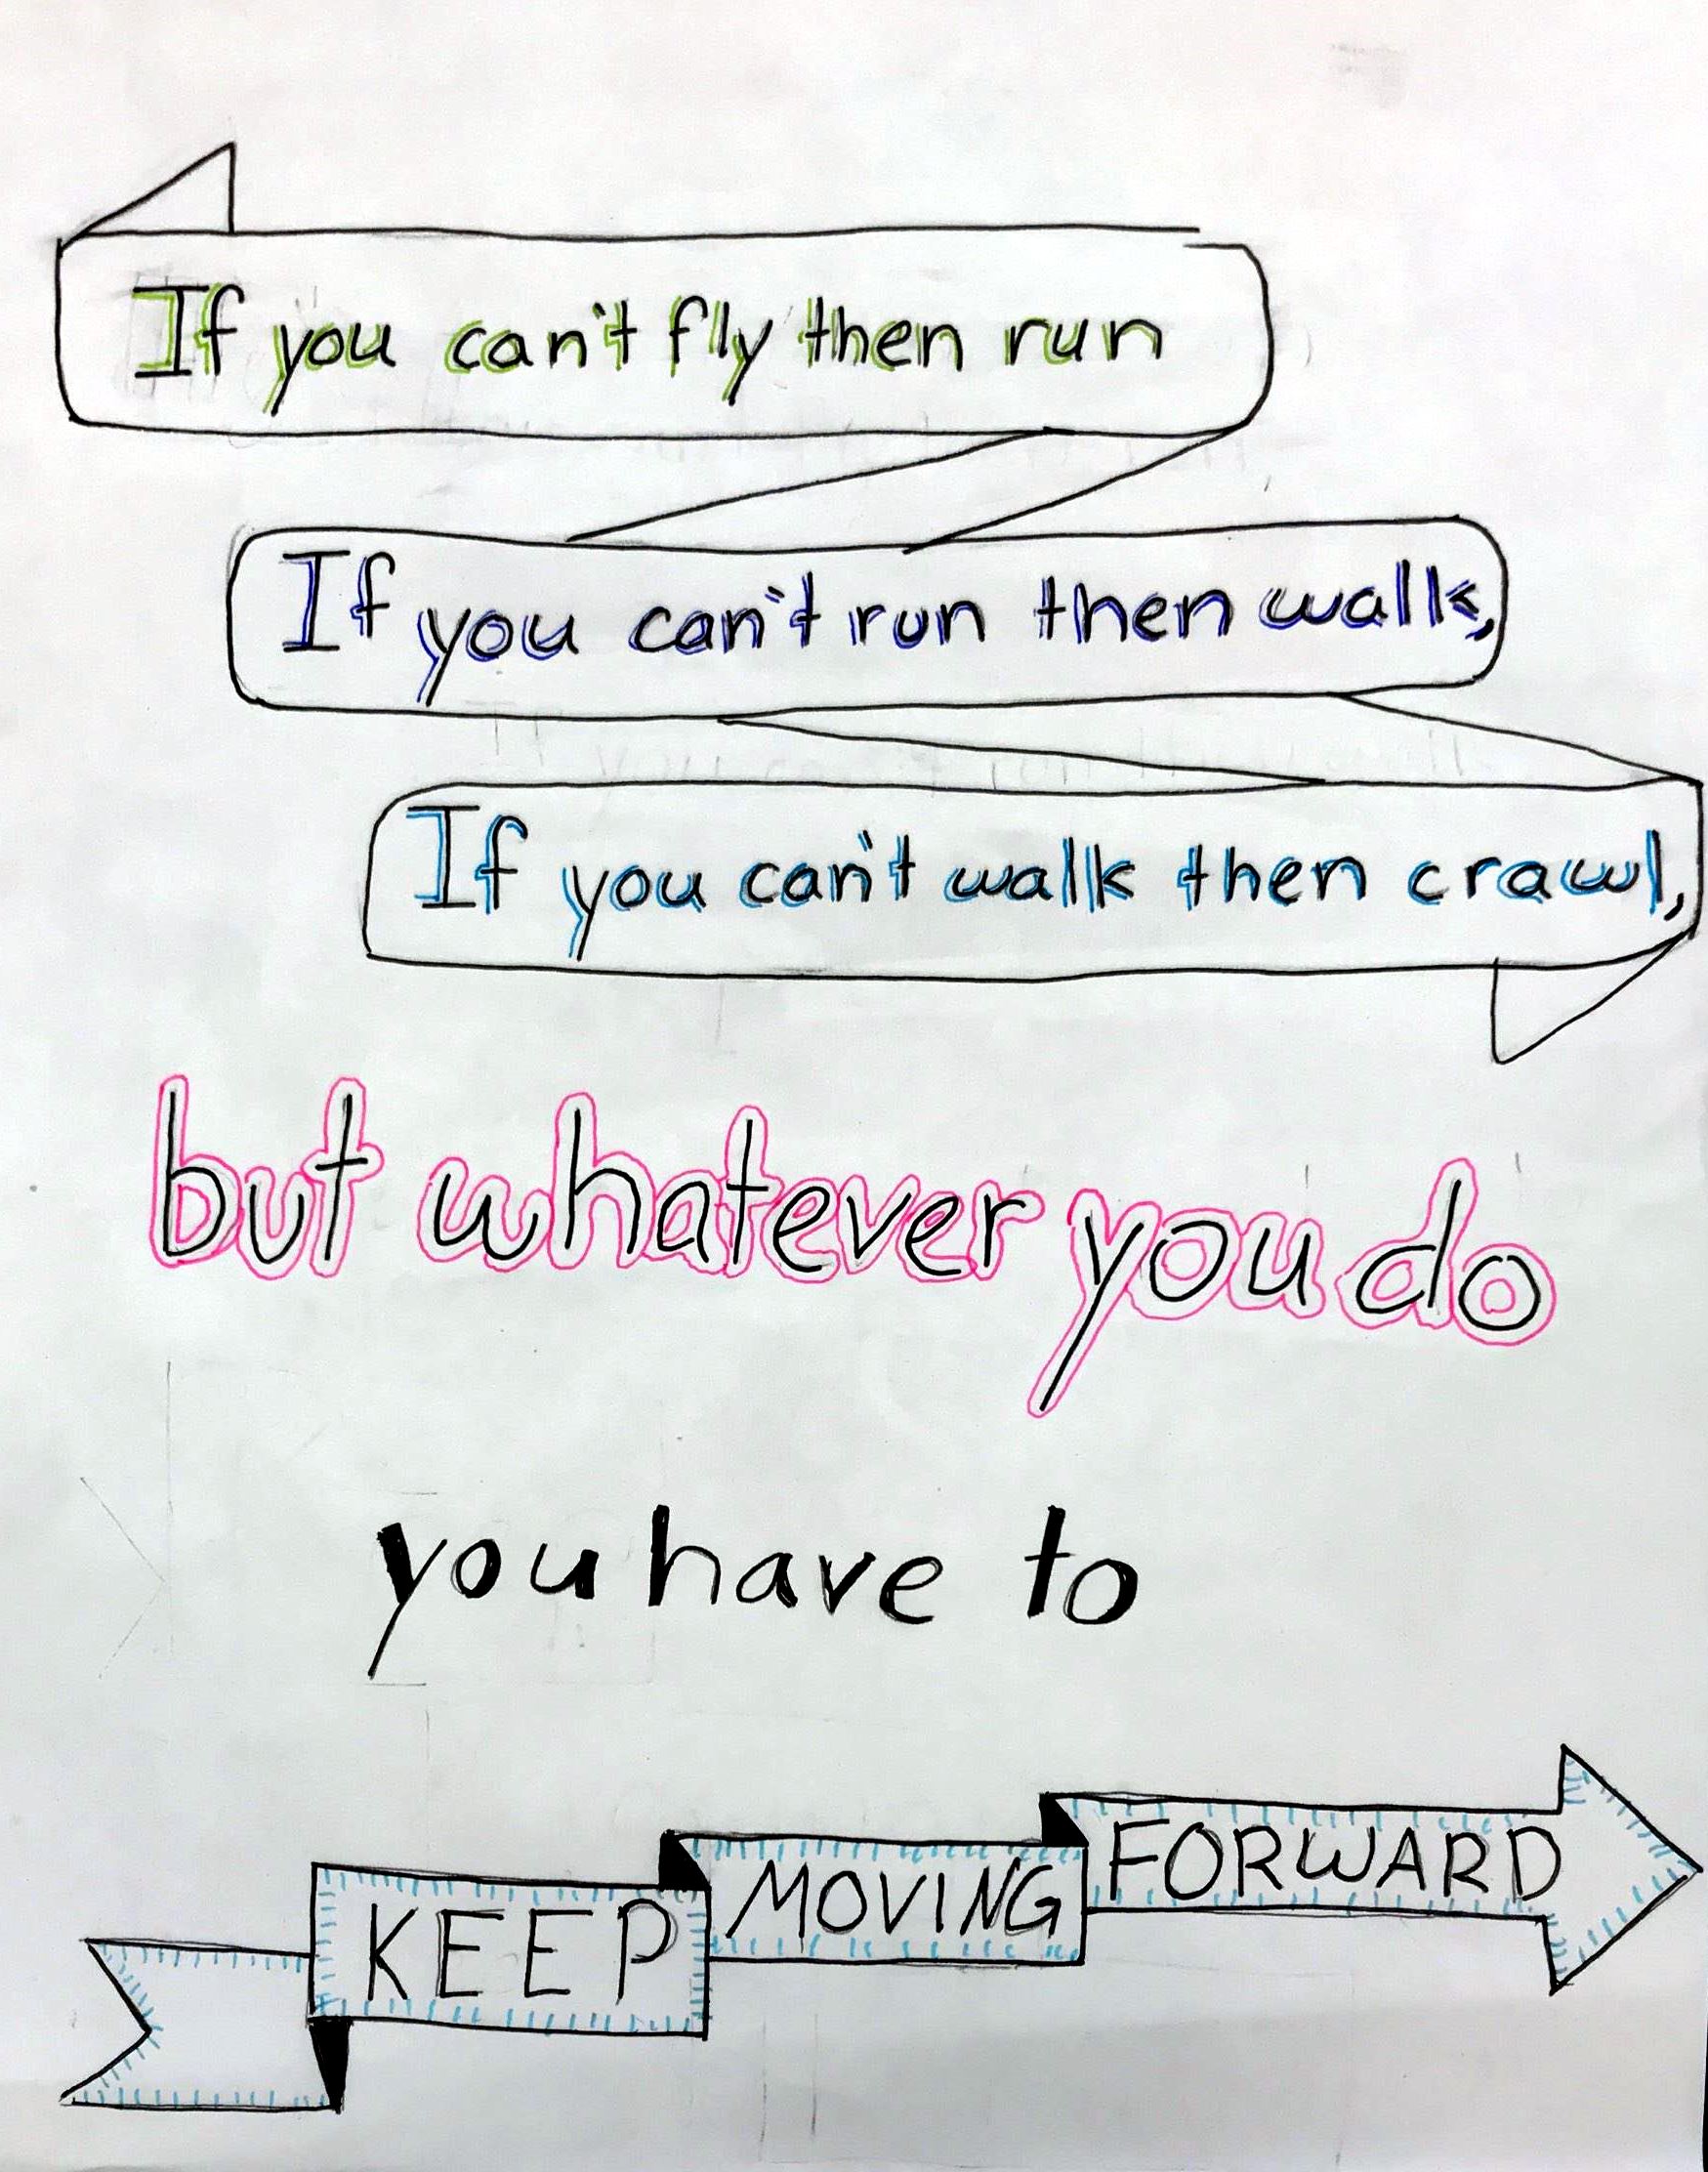 If you can't fly then run
If you can't run then walk,
If you can't walk then crawl,
but whatever you do
you have to
KEEP MOVING FORWARD